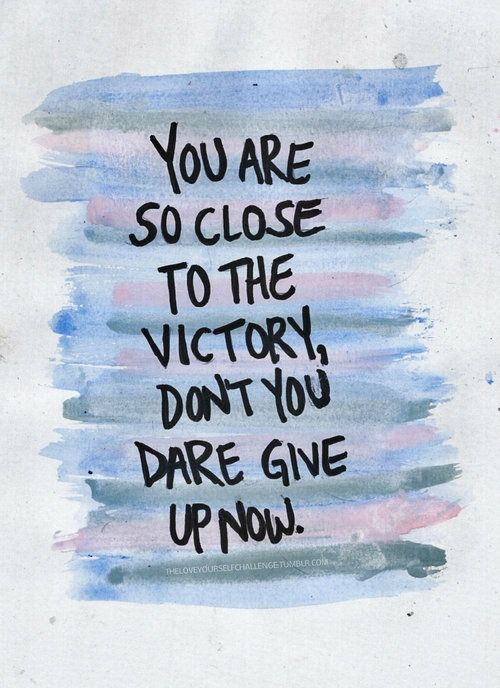 YOU ARE
SO CLOSE
TO THE
VICTORY,
DON'T YOU
DARE GIVE
UP NOW.
THELOVEYOURSELFCHALLENGE.TUMBLR.COM